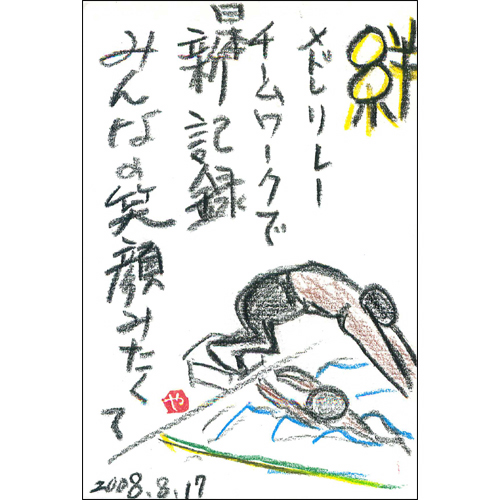 絆
メドレリレー
チームワークで
最新記録
みんなの笑顔みたくて
や
2008.8.17